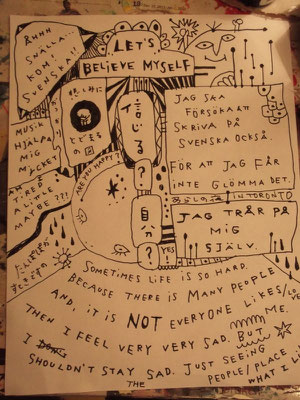 ÅHHH
SNÄLLA..
KOM!
SVENSKA!!
LET'S
BELIEVE MYSELF
MUSIK
HJÄLPA
MIG
MYCKET
信じる
?
自分
?
YES
ARE YOU HAPPY?
AM I
TIRED
A LITTLE
MAYBE???
JAG SKA
FÖRSÖKA ATT
SKRIVA PÅ
SVENSKA OCKSÅ
FÖR ATT JAG FÅR
INTE GLÖMMA DET.
IN TORONTO
JAG TRÅR PÅ
MIG
SJÄLV.
SOMETIMES LIFE IS SO HARD.
BECAUSE THERE IS MANY PEOPLE
AND, IT IS NOT EVERYONE LIKES/
ME.
THEN I FEEL VERY VERY SAD. BUT
I SHOULDN'T STAY SAD. JUST SEEING
THE PEOPLE/PLACE
WHAT I